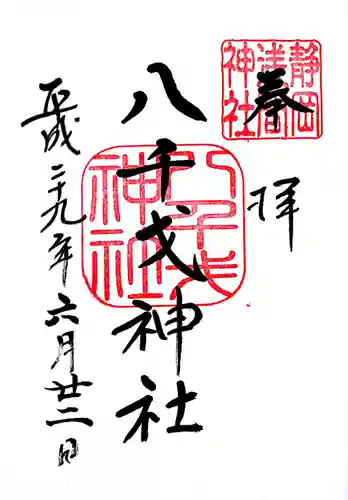 奉拝
静岡浅間神社
八千戈神社
八千戈神社
平成二十九年六月廿二日